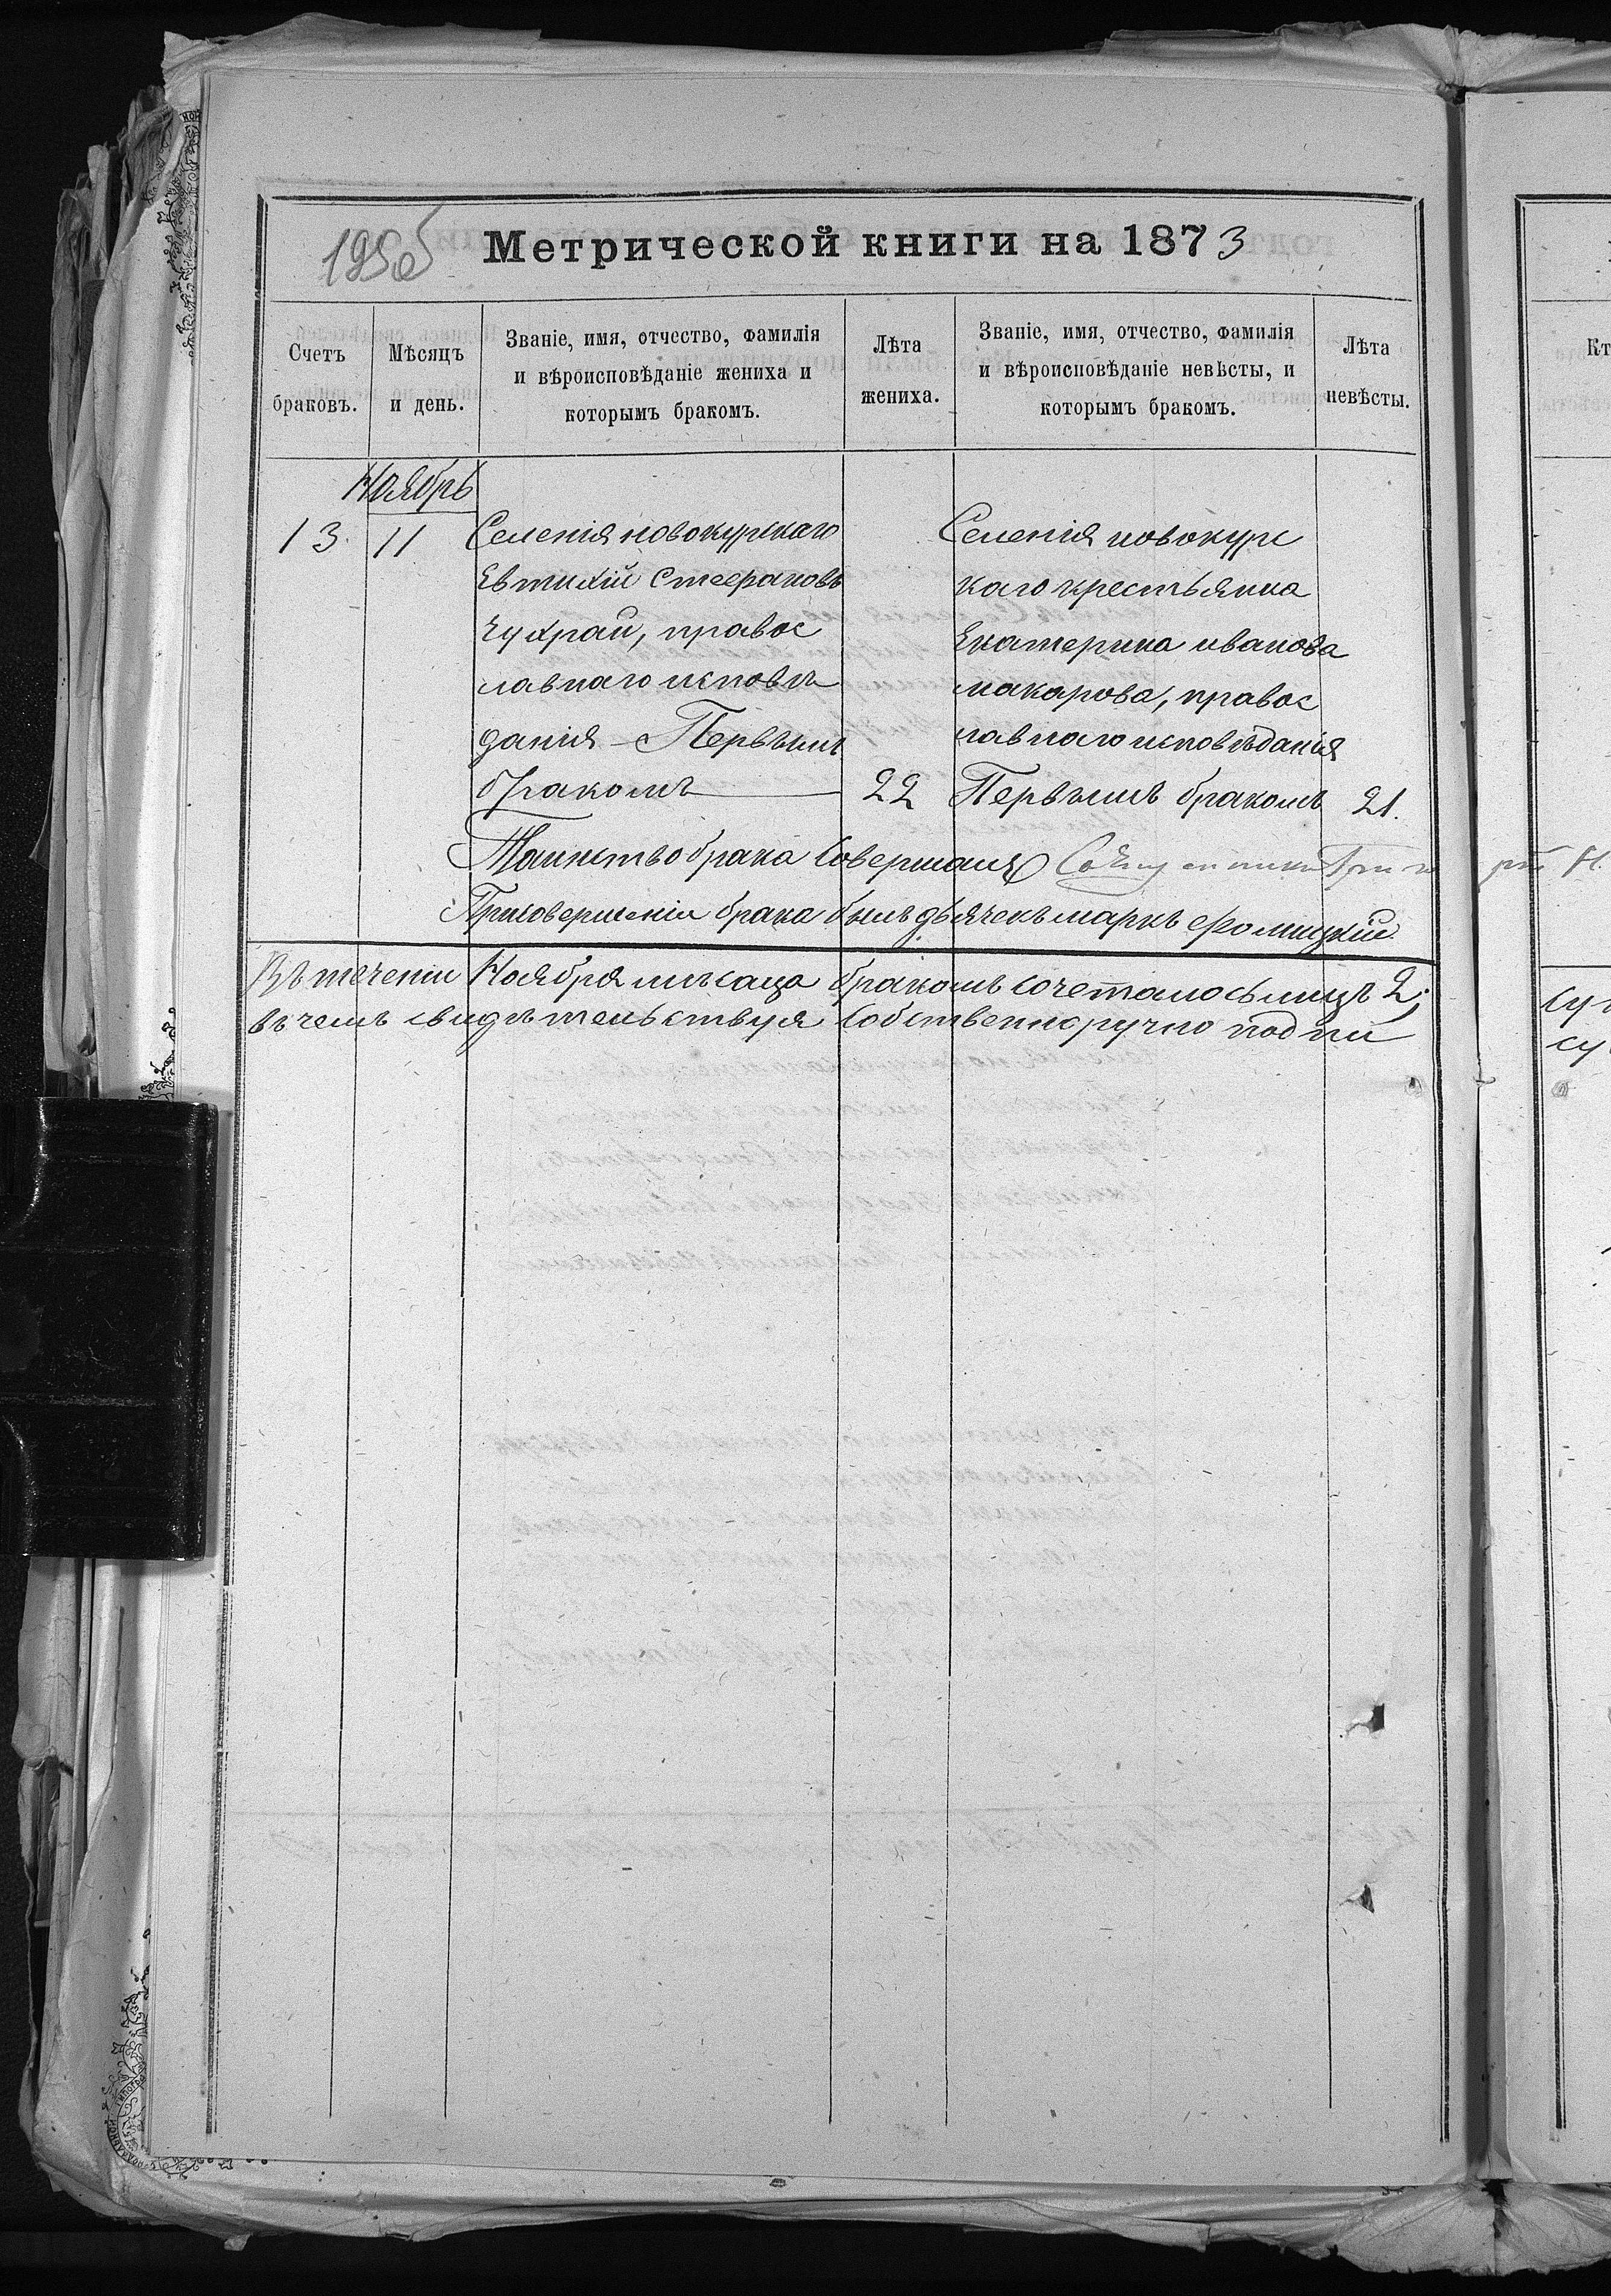 195об
Метрической книги на 1873
Счетъ браковъ.
Мѣсяцъ и день.
Званіе, имя, отчество, фамилія и вѣроисповѣданіе жениха и которымъ бракомъ.
Лѣта жениха.
Званіе, имя, отчество, фамилія и вѣроисповѣданіе невѣсты, и которымъ бракомъ.
Лѣта невѣсты.
Ноябрь
13. 11
Селенія новокурскаго
Евтихій Стефановъ
Чухрай, правос
лавнаго исповѣ
данія – Первымъ
бракомъ
22
Селенія новокурс
каго крестьянка
Екатерина иванова
макарова, правос
лавнаго исповѣданія
Первымъ бракомъ
21.
Таинство брака Совершалъ
Присовершеніи брака былъ дьячекъ маркъ Фомицкій.
Въ теченіи Ноября мѣсаца бракомъ сочеталось лицъ 2;
въ чемъ свидѣтельствуя собственноручно подпи